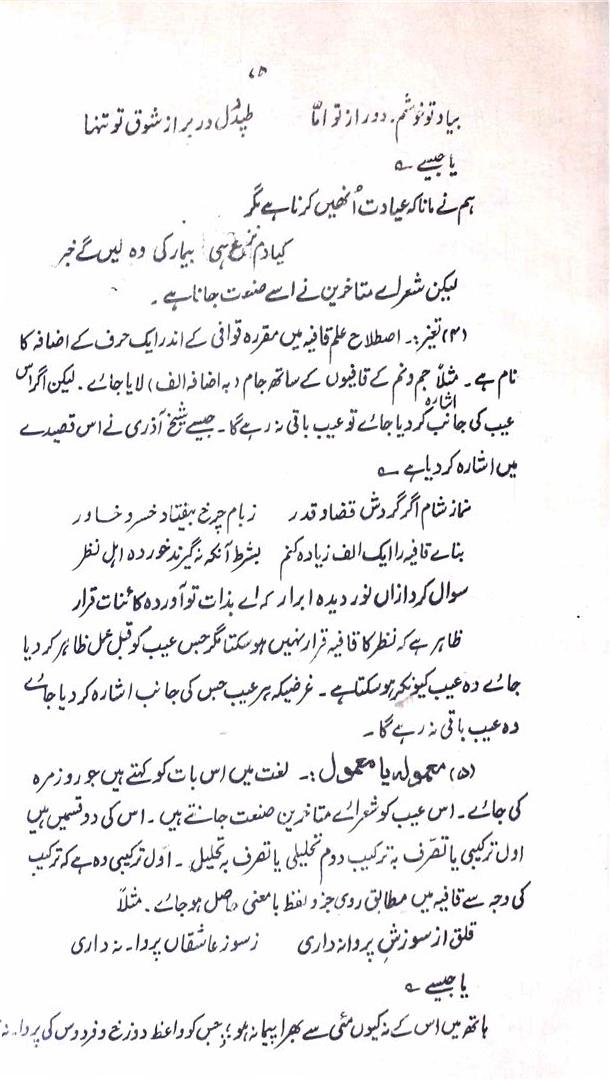 ۷۵
بیاد تو خوشم . دور از تو امّا طپد دل در بر از شوق تو تنہا
یا جیسے ے
ہم نے مانا کہ عیادت اُنھیں کرنا ہے مگر
کیا دم نزع ہی بیمار کی وہ لیں گے خبر
لیکن شعراے متاخرین نے اسے صنعت جانا ہے ۔
(۴) تغیّر :۔ اصطلاح علم قافیہ میں مقررہ قوافی کے اندر ایک حرف کے اضافہ کا
نام ہے ۔ مثلاً جم و نم کے قافیوں کے ساتھ جام (بہ اضافہ الف) لایا جائے . لیکن اگر اس
عیب کی جانب اشارہ کر دیا جائے تو عیب باقی نہ رہے گا ۔ جیسے شیخ آذری نے اس قصیدے
میں اشارہ کر دیا ہے ے
نماز شام اگر گردش قضا و قدر زبام چرخ بیفتاد خسرو خاور
بناے قافیہ را ایک الف زیادہ کنم بشرط آنکہ نہ گیرند خوردہ اہل نظر
سوال کرد ازاں نور دیدہ ابرار کہ اے بذات تو آوردہ کائنات قرار
ظاہر ہے کہ نظر کا قافیہ قرار نہیں ہو سکتا مگر جس عیب کو قبل عمل ظاہر کر دیا
جائے وہ عیب کیونکر ہو سکتا ہے ۔ غرضیکہ ہر عیب جس کی جانب اشارہ کر دیا جائے
وہ عیب باقی نہ رہے گا ۔
(۵) معمولہ یا معمول :۔ لغت میں اس بات کو کہتے ہیں جو روزمرہ
کی جائے ۔ اس عیب کو شعراے متاخرین صنعت جانتے ہیں ۔ اس کی دو قسمیں ہیں
اول ترکیبی یا تصرّف بہ ترکیب دوم تحلیلی یا تصرف بہ تحلیل ۔ اوّل ترکیبی وہ ہے کہ ترکیب
کی وجہ سے قافیہ میں مطابق روی جزو لفظ با معنی حاصل ہو جائے . مثلاً
قلق از سوزشِ پروانہ داری ز سوز عاشقاں پروا ۔ نہ داری
یا جیسے ے
ہاتھ میں اس کے نہ کیوں مئی سے بھرا پیمانہ ہو ؛ جس کو واعظ دوزخ و فردوس کی پروا ۔ نہ